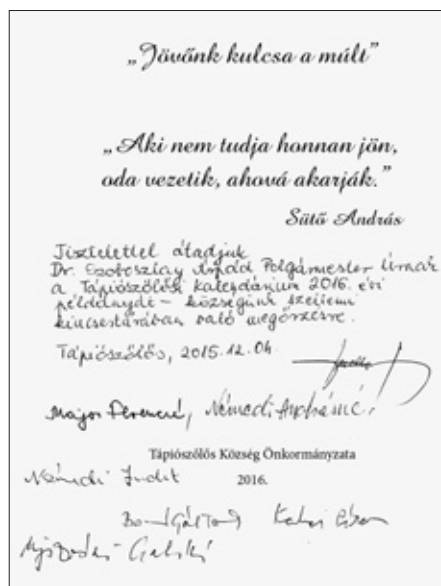 „Jövőnk kulcsa a múlt”
„Aki nem tudja honnan jön,
oda vezetik, ahová akarják.”
Sütő András
Tisztelettel átadjuk
Dr. Szoboszlay Árpád Polgármester Úrnak
a Tápiószőlősi Kalendárium 2016. évi
példányát – községünk szellemi
kincsestárában való megőrzésre.
Tápiószőlős, 2015.12.04.
Major Ferencné, Némedi
Tápiószőlős Község Önkormányzata
Némedi Judit
2016.